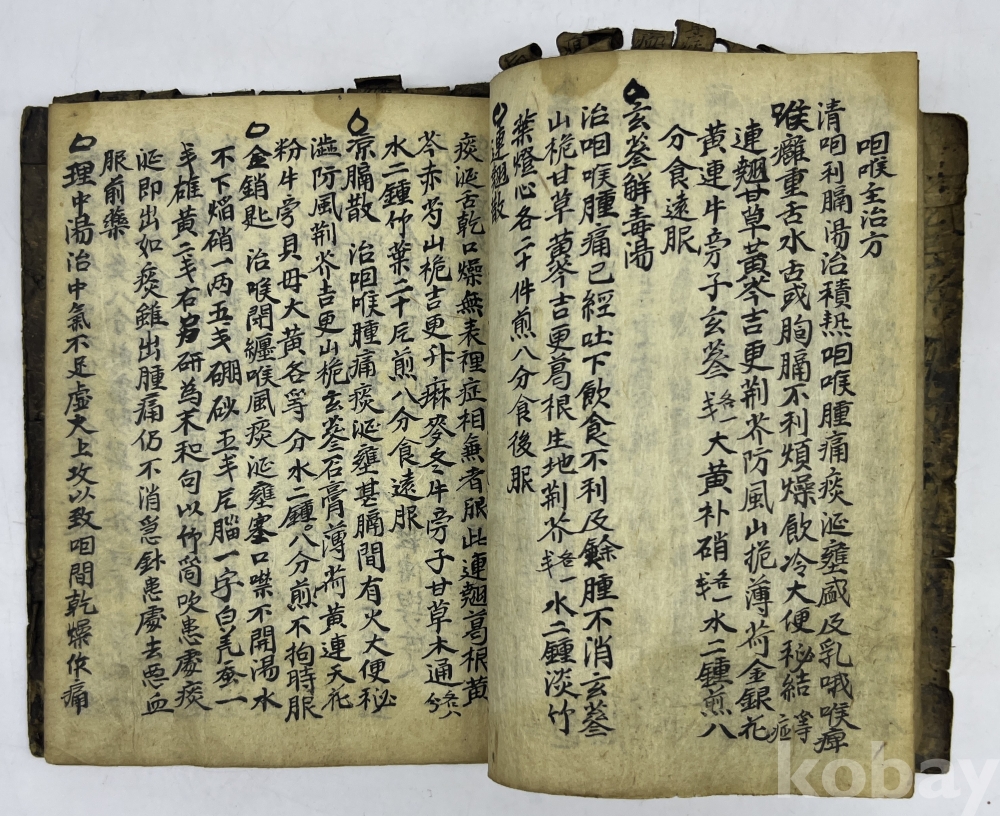 咽喉主治方
清咽利膈湯治積热咽喉腫痛痰涎壅盛及乳哦喉痺
喉癰重舌水舌或胸膈不利煩燥飲冷大便秘結等症
連翹甘草黄岑吉更荆芥防風山梔薄荷金銀花
黄連牛旁子玄參各一大黄补硝各一水二鍾煎八
分食遠服
玄參觧毒湯
治咽喉腫痛已經吐下飲食不利及餘腫不消玄參
山梔甘草黄岑吉更葛根生地荆芥各一水二鍾淡竹
葉燈心各二十件煎八分食後服
連翹散
痰涎舌乾口燥無表裡症相無者服此連翹葛根黄
芩赤芍山梔吉更升麻麥冬牛旁子甘草木通各八分
水二鍾竹葉二十片煎八分食遠服
凉膈散 治咽喉腫痛痰涎壅甚膈間有火大便秘
澁防風荆芥吉更山梔玄參石膏薄荷黄連天花
粉牛旁貝母大黄各等分水二鍾。八分煎不拘時服
金鎖匙 治喉閉纏喉風痰涎壅塞口噤不開湯水
不下焰硝一两五戋硼砂五戋片腦一字白羌蚕一
戋雄黄二戋右 研為末和匀以竹筒吹患處痰
涎即出如痰雖出腫痛仍不消急針患處去恶血
服前藥
理中湯治中氣不足虚火上攻以致咽間乾燥作痛
kobay